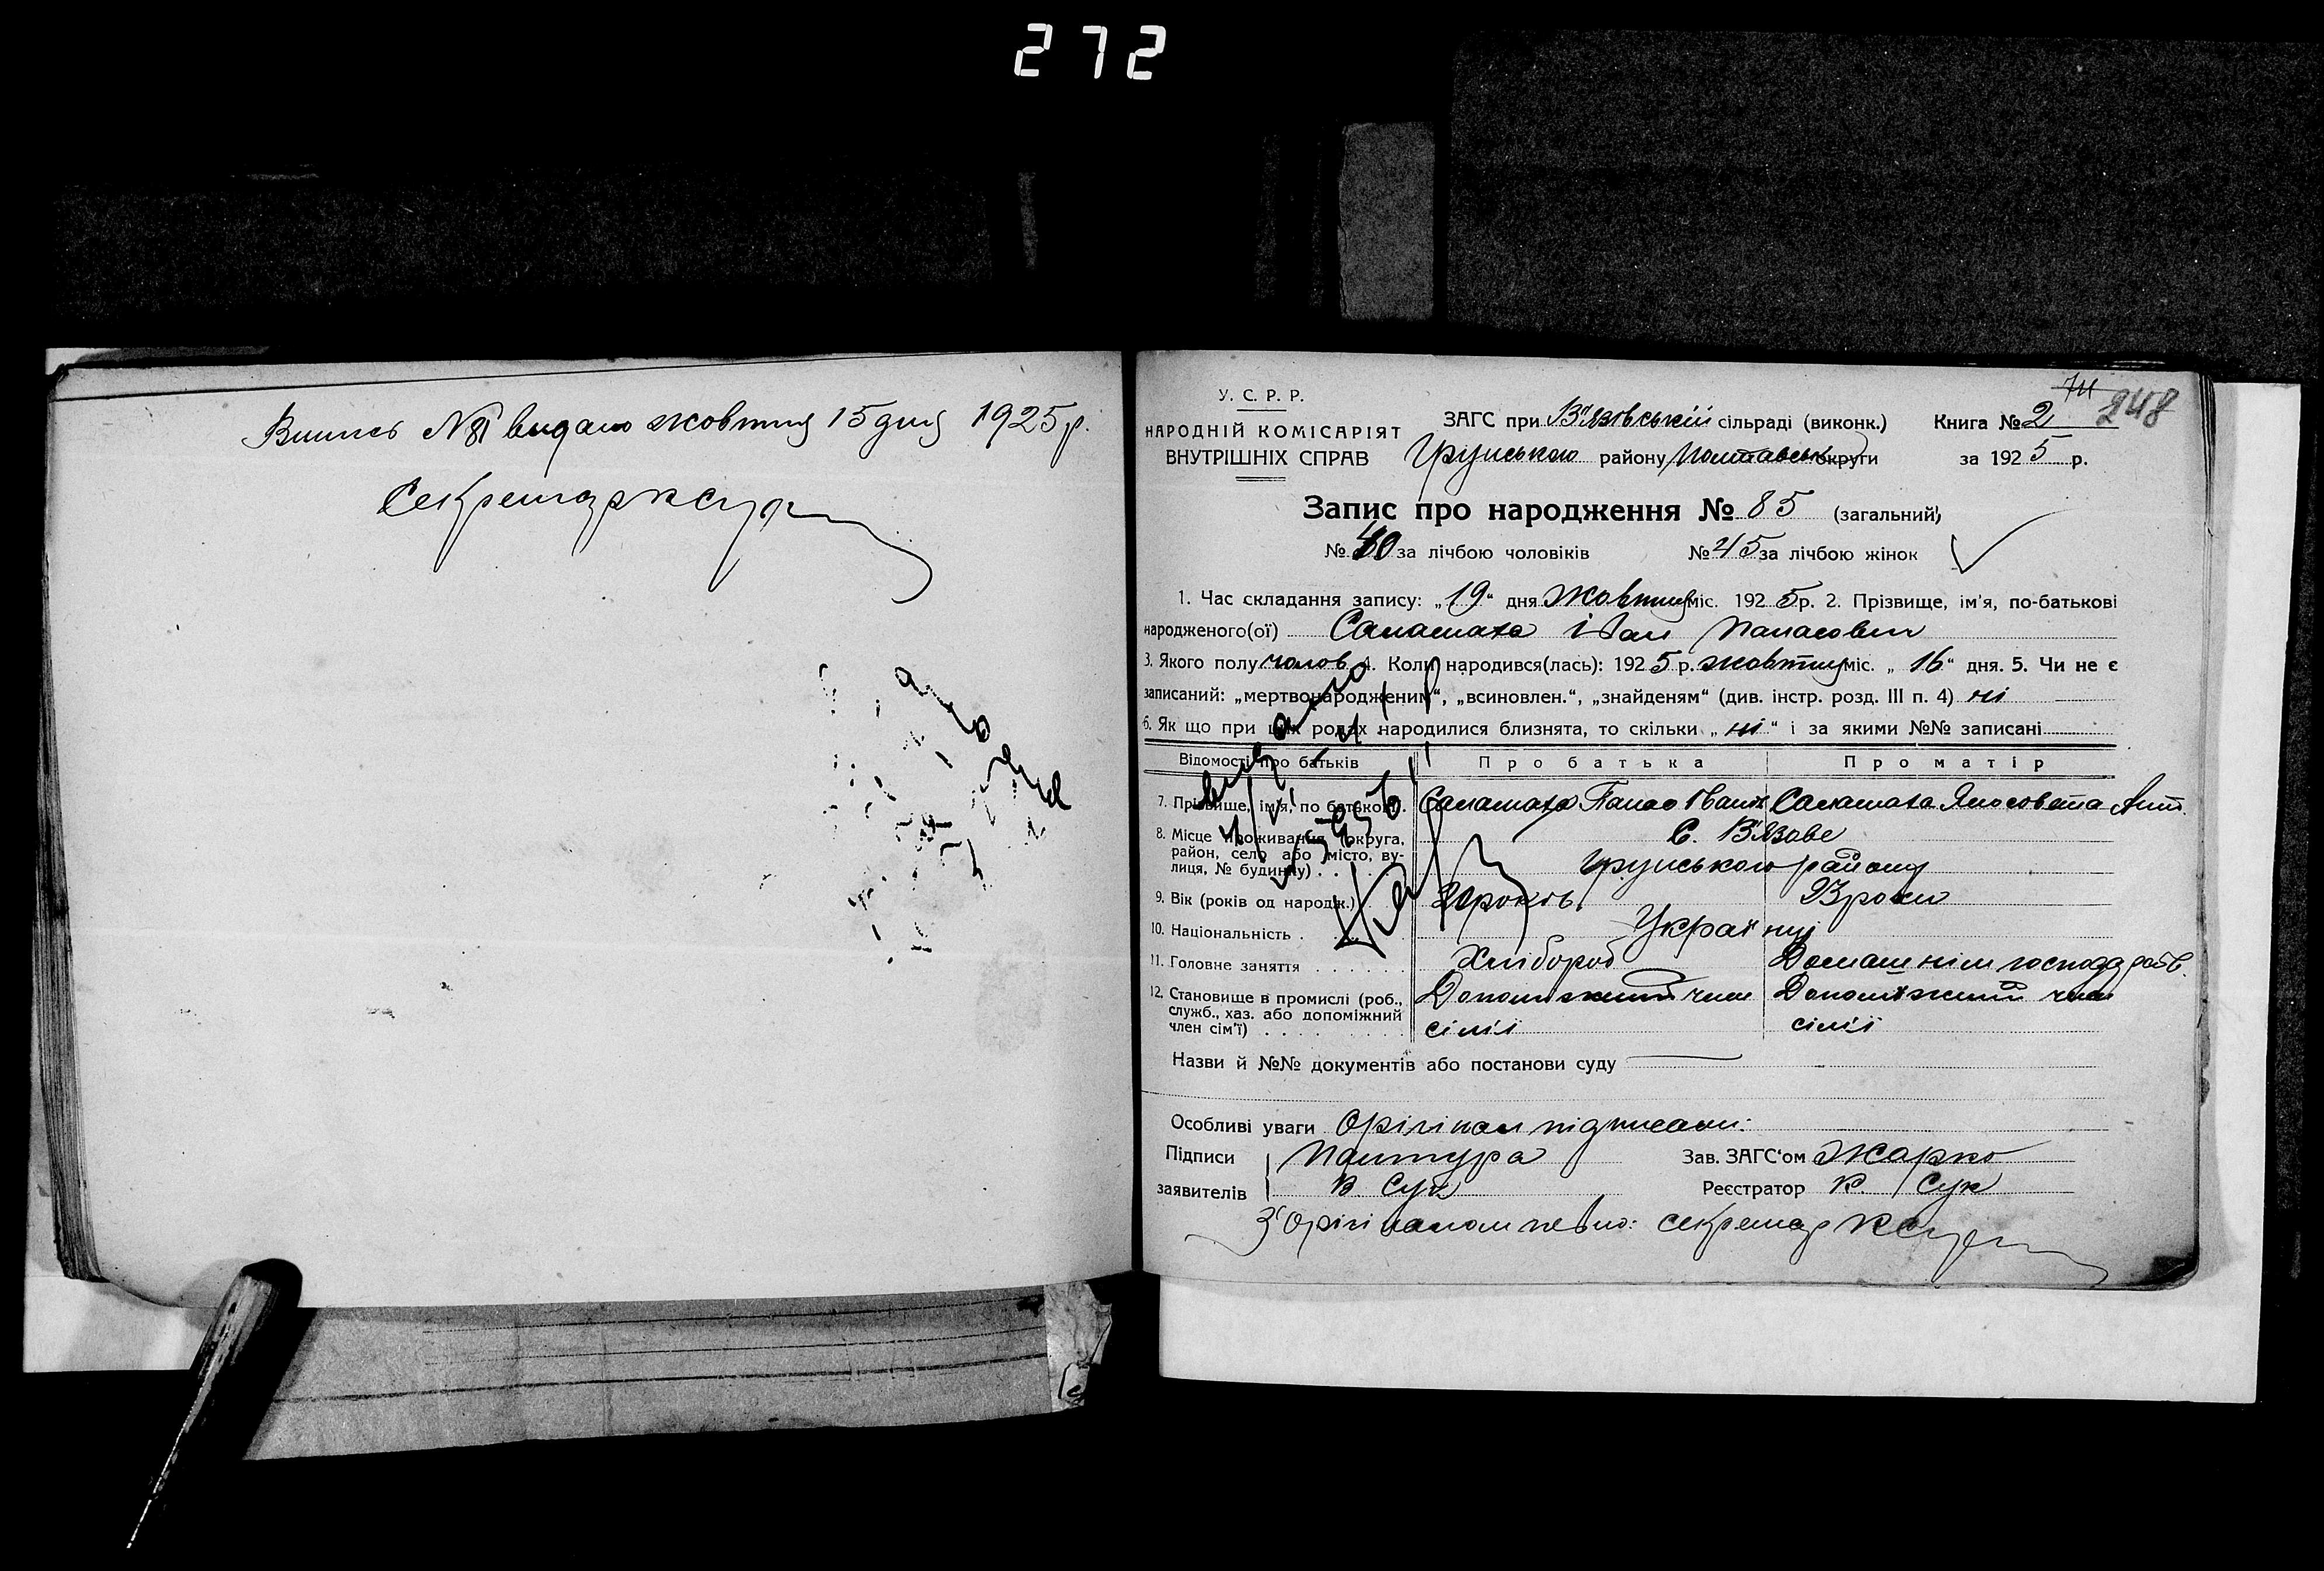 272
Випись №81 видано жовтня 15 дня 1925 р.
Секретар
У. С. Р. Р.
НАРОДНІЙ КОМІСАРІЯТ
ВНУТРІШНІХ СПРАВ
ЗАГС при В'язівській сільраді (виконк.)
Грунського району Полтавськ округи
Книга № 2
248
за 1925 р.
Запис про народження № 85 (загальний)
№ 40 за лічбою чоловіків № 45 за лічбою жінок
1. Час складання запису: „19“ дня Жовтня міс. 1925 р. 2. Прізвище, ім'я, по-батькові
народженого(ої) Саламаха Іван Панасович
3. Якого полу чолов. 4. Коли народився(лась): 1925 р. жовтня міс. „16“ дня. 5. Чи не є
записаний: „мертвонародженим“, „всиновлен.“, „знайденям“ (див. інстр. розд. III п. 4) ні
6. Як що при цих родах народилися близнята, то скільки „ні“ і за якими №№ записані
Відомості про батьків Про батька Про матір
7. Прізвище, ім'я, по батькові. Саламаха Панас Іванів Саламаха
8. Місце проживання (округа, район, село або місто, вулиця, № будинку) . . С. В'язове
Грунського району
9. Вік (років од народж.) років. 23 роки
10. Національність . Українці
11. Головне заняття . . . . . . Хлібороб Домашнім господарств.
12. Становище в промислі (роб., служб., хаз. або допоміжний член сім'ї) . . . . Допоміжний член сім'ї Допоміжний член сім'ї
Назви й №№ документів або постанови суду
Особливі уваги Орігінал підписали:
Підписи Зав. ЗАГС'ом Жарко
заявителів В. Сук Реєстратор К. Сук
З орігіналом певно: секретар
видано